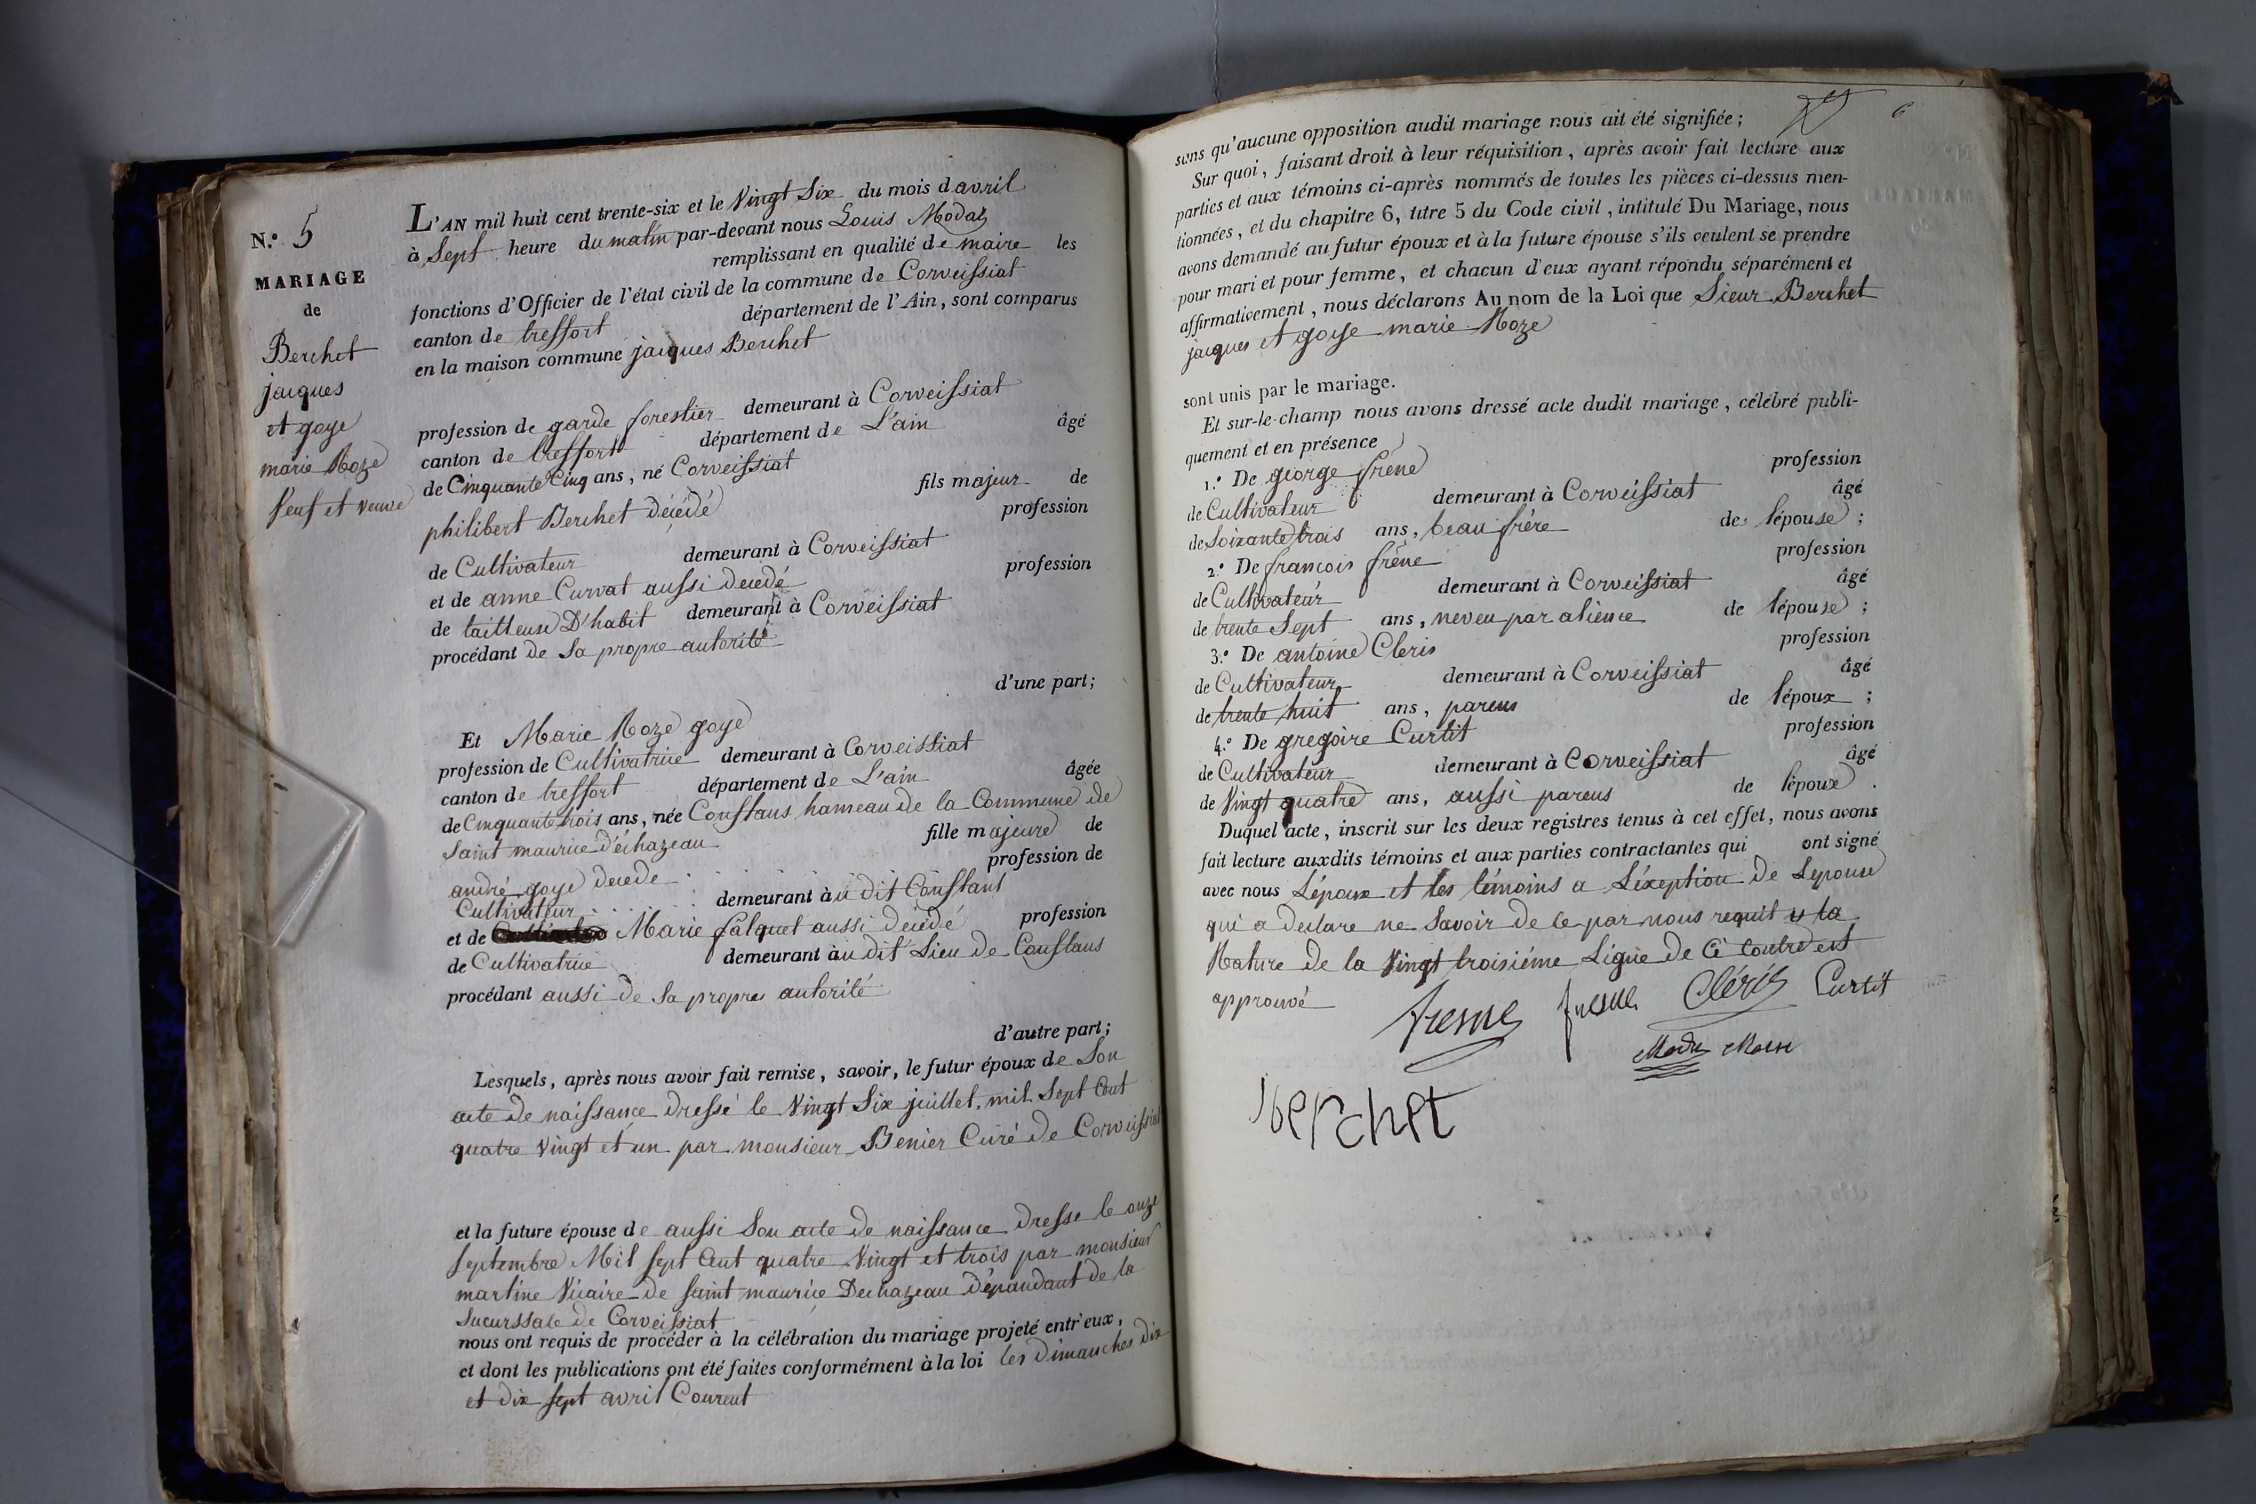 N.° 5
MARIAGE
de
Berchet
jacques
et goye
marie Roze
veuf et veuve
L'AN mil huit cent trente-six et le Vingt Six du mois d avril
à Sept heure du matin par-devant nous Louis Modas
remplissant en qualité de maire les
fonctions d'Officier de l'état civil de la commune de Corveissiat
canton de treffort département de l'Ain, sont comparus
en la maison commune jacques Berchet
profession de garde forestier demeurant à Corveissiat
canton de treffort département de L'ain âgé
de Cinquante Cinq ans, né Corveissiat
fils majeur de
philibert Berchet décédé profession
de Cultivateur demeurant à Corveissiat
et de anne Curvat aussi decedé profession
de tailleuse D'habit demeurant à Corveissiat
procédant de Sa propre autorité
d'une part;
Et Marie Roze goye
profession de Cultivatrice demeurant à Corveissiat
canton de treffort département de L'ain âgée
de Cinquante trois ans, née Conflans hameau de la Commune de
Saint maurice d'échazeau fille majeure de
andré goye decede profession de
Cultivateur demeurant àu dit Conflant
et de Marie falquet aussi décédé profession
de Cultivatrice demeurant àu dit Lieu de Conflans
procédant aussi de Sa propres autorité
d'autre part;
Lesquels, après nous avoir fait remise, savoir, le futur époux de Son
acte de naissance dressé le Vingt Six juillet mil Sept Cent
quatre Vingt et un par monsieur Benier Curé de Corveissiat
et la future épouse de aussi Son acte de naissance dresse le onze
Septembre Mil Sept Cent quatre Vingt et trois par monsieur
martine Vicaire de Saint maurice Dechazeau dépandant de la
Sucurssale de Corveissiat
nous ont requis de procéder à la célébration du mariage projeté entr'eux,
et dont les publications ont été faites conformément à la loi les dimanches dix
et dix sept avril Courent
6
sans qu'aucune opposition audit mariage nous ait été signifiée;
Sur quoi, faisant droit à leur réquisition, après avoir fait lecture aux
parties et aux témoins ci-après nommés de toutes les pièces ci-dessus men-
tionnées, et du chapitre 6, titre 5 du Code civil, intitulé Du Mariage, nous
avons demandé au futur époux et à la future épouse s'ils veulent se prendre
pour mari et pour femme, et chacun d'eux ayant répondu séparément et
affirmativement, nous déclarons Au nom de la Loi que Sieur Berchet
jacques et goye marie Roze
sont unis par le mariage.
Et sur-le-champ nous avons dressé acte dudit mariage, célébré publi-
quement et en présence
1.° De giorge frene profession
de Cultivateur demeurant à Corveissiat âgé
de Soixante trois ans, beau frère de lépouse;
2.° De francois frène profession
de Cultivateur demeurant à Corveissiat âgé
de trente Sept ans, neveu par alience de lépouse;
3.° De antoine Cleris profession
de Cultivateur demeurant à Corveissiat âgé
de trente huit ans, parens de lépoux;
4.° De gregoire Curtit profession
de Cultivateur demeurant à Corveissiat âgé
de Vingt quatre ans, aussi parens de lépoux.
Duquel acte, inscrit sur les deux registres tenus à cet effet, nous avons
fait lecture auxdits témoins et aux parties contractantes qui ont signé
avec nous Lépoux et les témoins a Léxeption de Lepouse
qui a declare ne Savoir de ce par nous requit la
Rature de la Vingt troisiéme Ligne de Ci contre est
approuvé
fresne fresne Cléris Curtit
Modas Maire
berchet